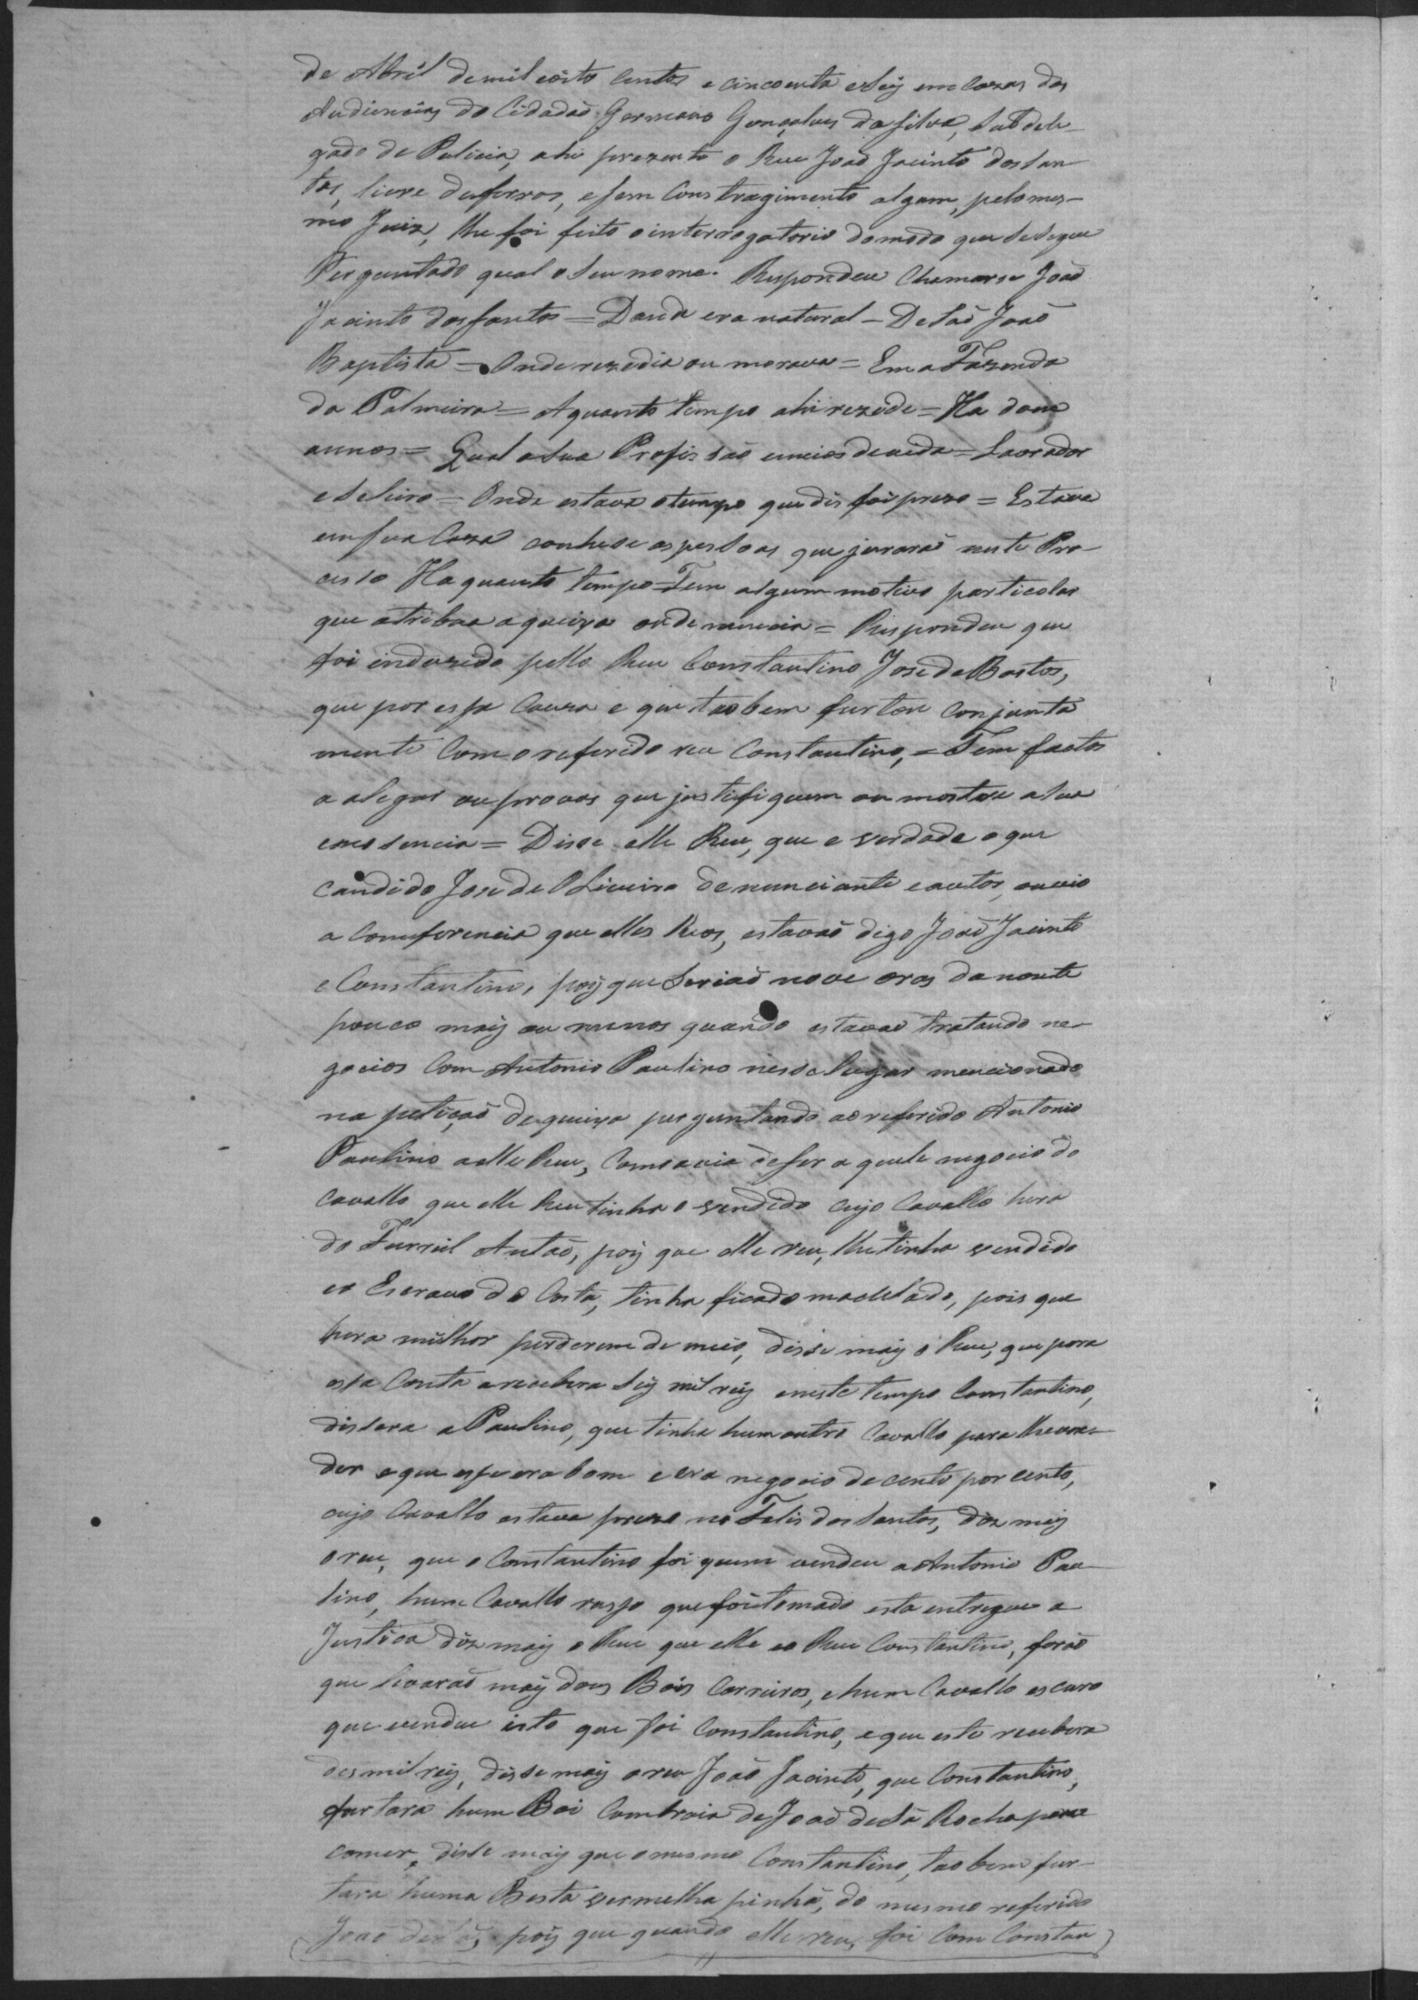 de Abril de mil eoito centos e cincoenta eSeiz em Cazas das
Audiencias do Cidadaõ Germano Gonçalves da Silva, Subdele-
gado de Policia, ahi prezente o Reu Joaõ Jacinto dos San-
tos, livre de ferros, e sem Constragimento algum, pelo mes-
mo Juiz, lhe foi feito o interrogatorio do modo que se segue
Perguntado qual o seu nome. Respondeu Chamarse Joaõ
Jacinto dos Santos = Donde era natural = De Saõ Joaõ
Baptista = Onde rezedia ou morava = Em a Fazenda
da Palmeira = A quanto tempo ahi rezede = Ha dous
annos = Qual a sua Profissaõ e meios de veda = Lavrador
e Seleiro = Onde estava o tempo que dis foi prezo = Estava
em sua Caza conhese as pessoas que juraraõ neste Pro-
cesso Ha quanto tempo = Tem algum motivo particolar
que atribua a queixa ou denuncia = Respondeu que
foi enduzido pello Reu Constantino Jose de Bastos,
que por essa Cauza e que taobem furtou conjunta
mente Com o referido reu Constantino, = Tem factos
a alegar ou provas que justifiquem ou mostre a sua
enosencia = Disse elle Reu, que e verdade o que
Candido Jose de Oliveira denunciante e autor, ouvio
a Comferencia que elles Reos, estavaõ digo Joaõ Jacinto
e Constantino, poiz que Seriaõ nove oras da noute
pouco maiz ou menos quando estavaõ tratando ne-
gocios Com Antonio Paulino nesse lugar mencionado
na petiçaõ de queixa perguntando ao referido Antonio
Paulino a elle Reu, Como avia de ser aquele negocio do
Cavallo que elle Reu tinha o vendido cujo Cavallo hera
do Furriel Antaõ, poiz que elle reu, lhe tinha vendido
eo Escravo do Costa, tinha ficado madelado, pois que
hera milhor perderem de meio, disse maiz o Reu, que por a
essa Conta a recebera Seiz mil reiz e neste tempo Constantino,
dissera a Paulino, que tinha hum outro Cavallo para lhe ven-
der e que esse era bom e era negocio de cento por cento,
cujo Cavallo estava prezo no Felis dos Santos, diz maiz
o reu, que o Constantino foi quem vendeu a Antonio Pau-
lino, hum Cavallo ruzso que foi tomado esta entregue a
Justica diz maiz o Reu que elle eo Reu Constantino, foraõ
que levaraõ maiz dous Bois Carreiros, e hum Cavallo escuro
que vendeu isto que foi Constantino, e que este recebera
des mil reiz, disse maiz o reu Joaõ Jacinto, que Constantino,
furtara hum Boi Cambraia de Joaõ de Sá Rocha para
comer, disse maiz que o mesmo Constantino, taobem fur-
tara huma Besta vermelha pinhaõ, do mesmo referido
Joaõ de Sá, poiz que quando elle reu, foi Com Constan